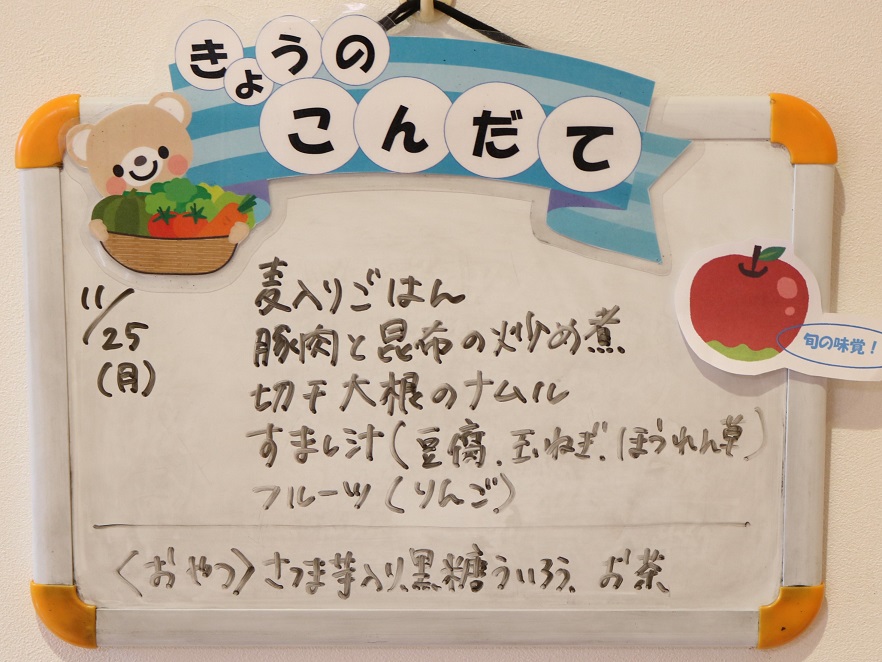 きょうの
こんだて
旬の味覚！
11/25
(月)
麦入りごはん
豚肉と昆布の炒め煮
切干大根のナムル
すまし汁(豆腐、玉ねぎ、ほうれん草)
フルーツ(りんご)
〈おやつ〉さつま芋入り黒糖ういろう、お茶